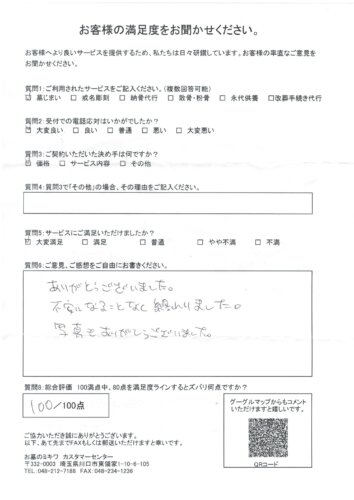 お客様の満足度をお聞かせください。
お客様へより良いサービスを提供するため、私たちは日々研鑽しています。お客様の率直なご意見を
お聞かせください。
質問1:ご利用されたサービスをご記入ください。(複数回答可能)
☑ 墓じまい □ 戒名彫刻 □ 納骨代行 □ 散骨・粉骨 □ 永代供養 □改葬手続き代行
質問2:受付での電話応対はいかがでしたか?
☑ 大変良い □ 良い □ 普通 □ 悪い □ 大変悪い
質問3:ご契約いただいた決め手は何ですか?
☑ 価格 □ サービス内容 □ その他
質問4:質問3で「その他」の場合、その理由をご記入ください。
質問5:サービスにご満足いただけましたか?
☑ 大変満足 □ 満足 □ 普通 □ やや不満 □ 不満
質問6:ご意見、ご感想をご自由にお書きください。
ありがとうございました。
不安になることなく終わりました。
写真もありがとうございました。
質問8:総合評価 100満点中、80点を満足度ラインするとズバリ何点ですか?
100/100点
グーグルマップからもコメント
いただけますと嬉しいです。
QRコード
ご協力いただき誠にありがとうございます。
以下、あて先までFAXもしくは郵送いただけますと幸いです。
お墓のミキワ カスタマーセンター
〒332-0003 埼玉県川口市東領家1-10-6-105
TEL.048-212-7188 FAX.048-234-1236